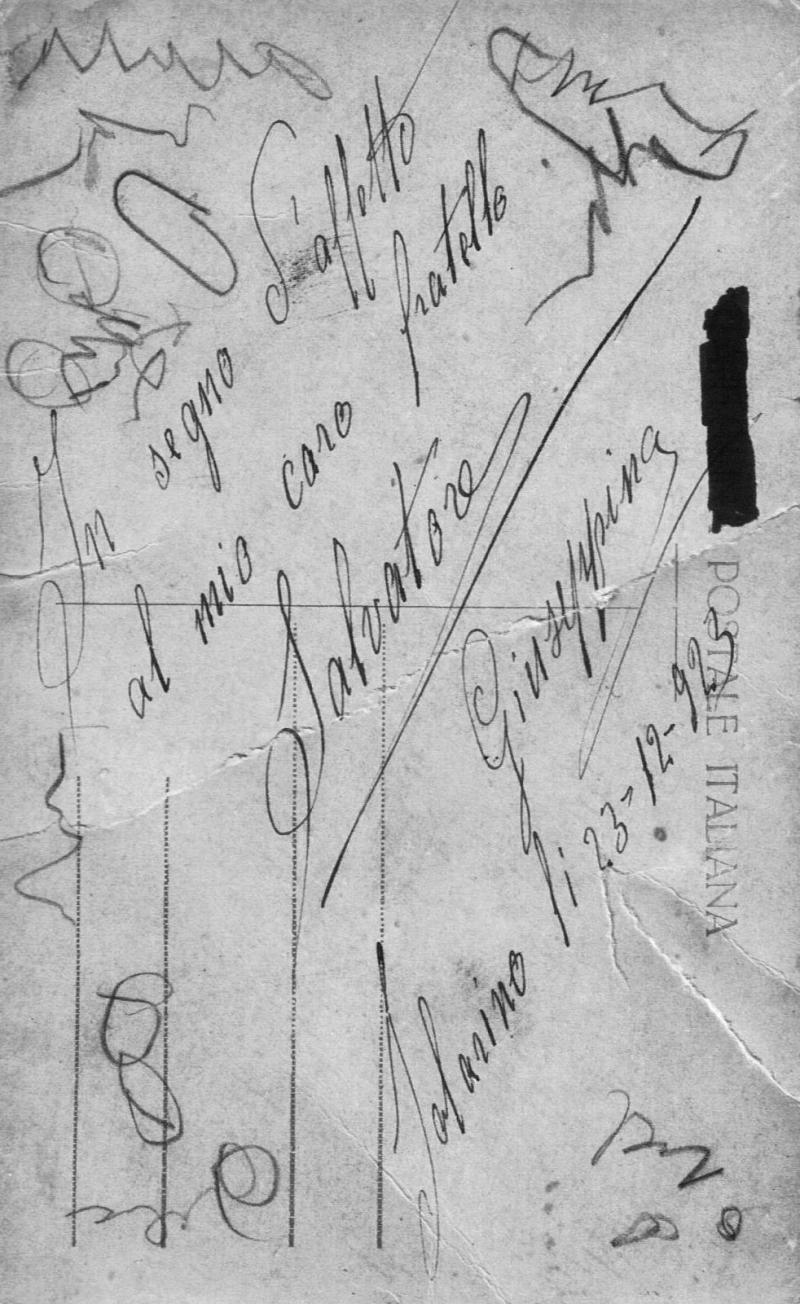 In segno d'affetto
al mio caro fratello
Salvatore
Giuseppina
li 23-12-925
POSTALE ITALIANA